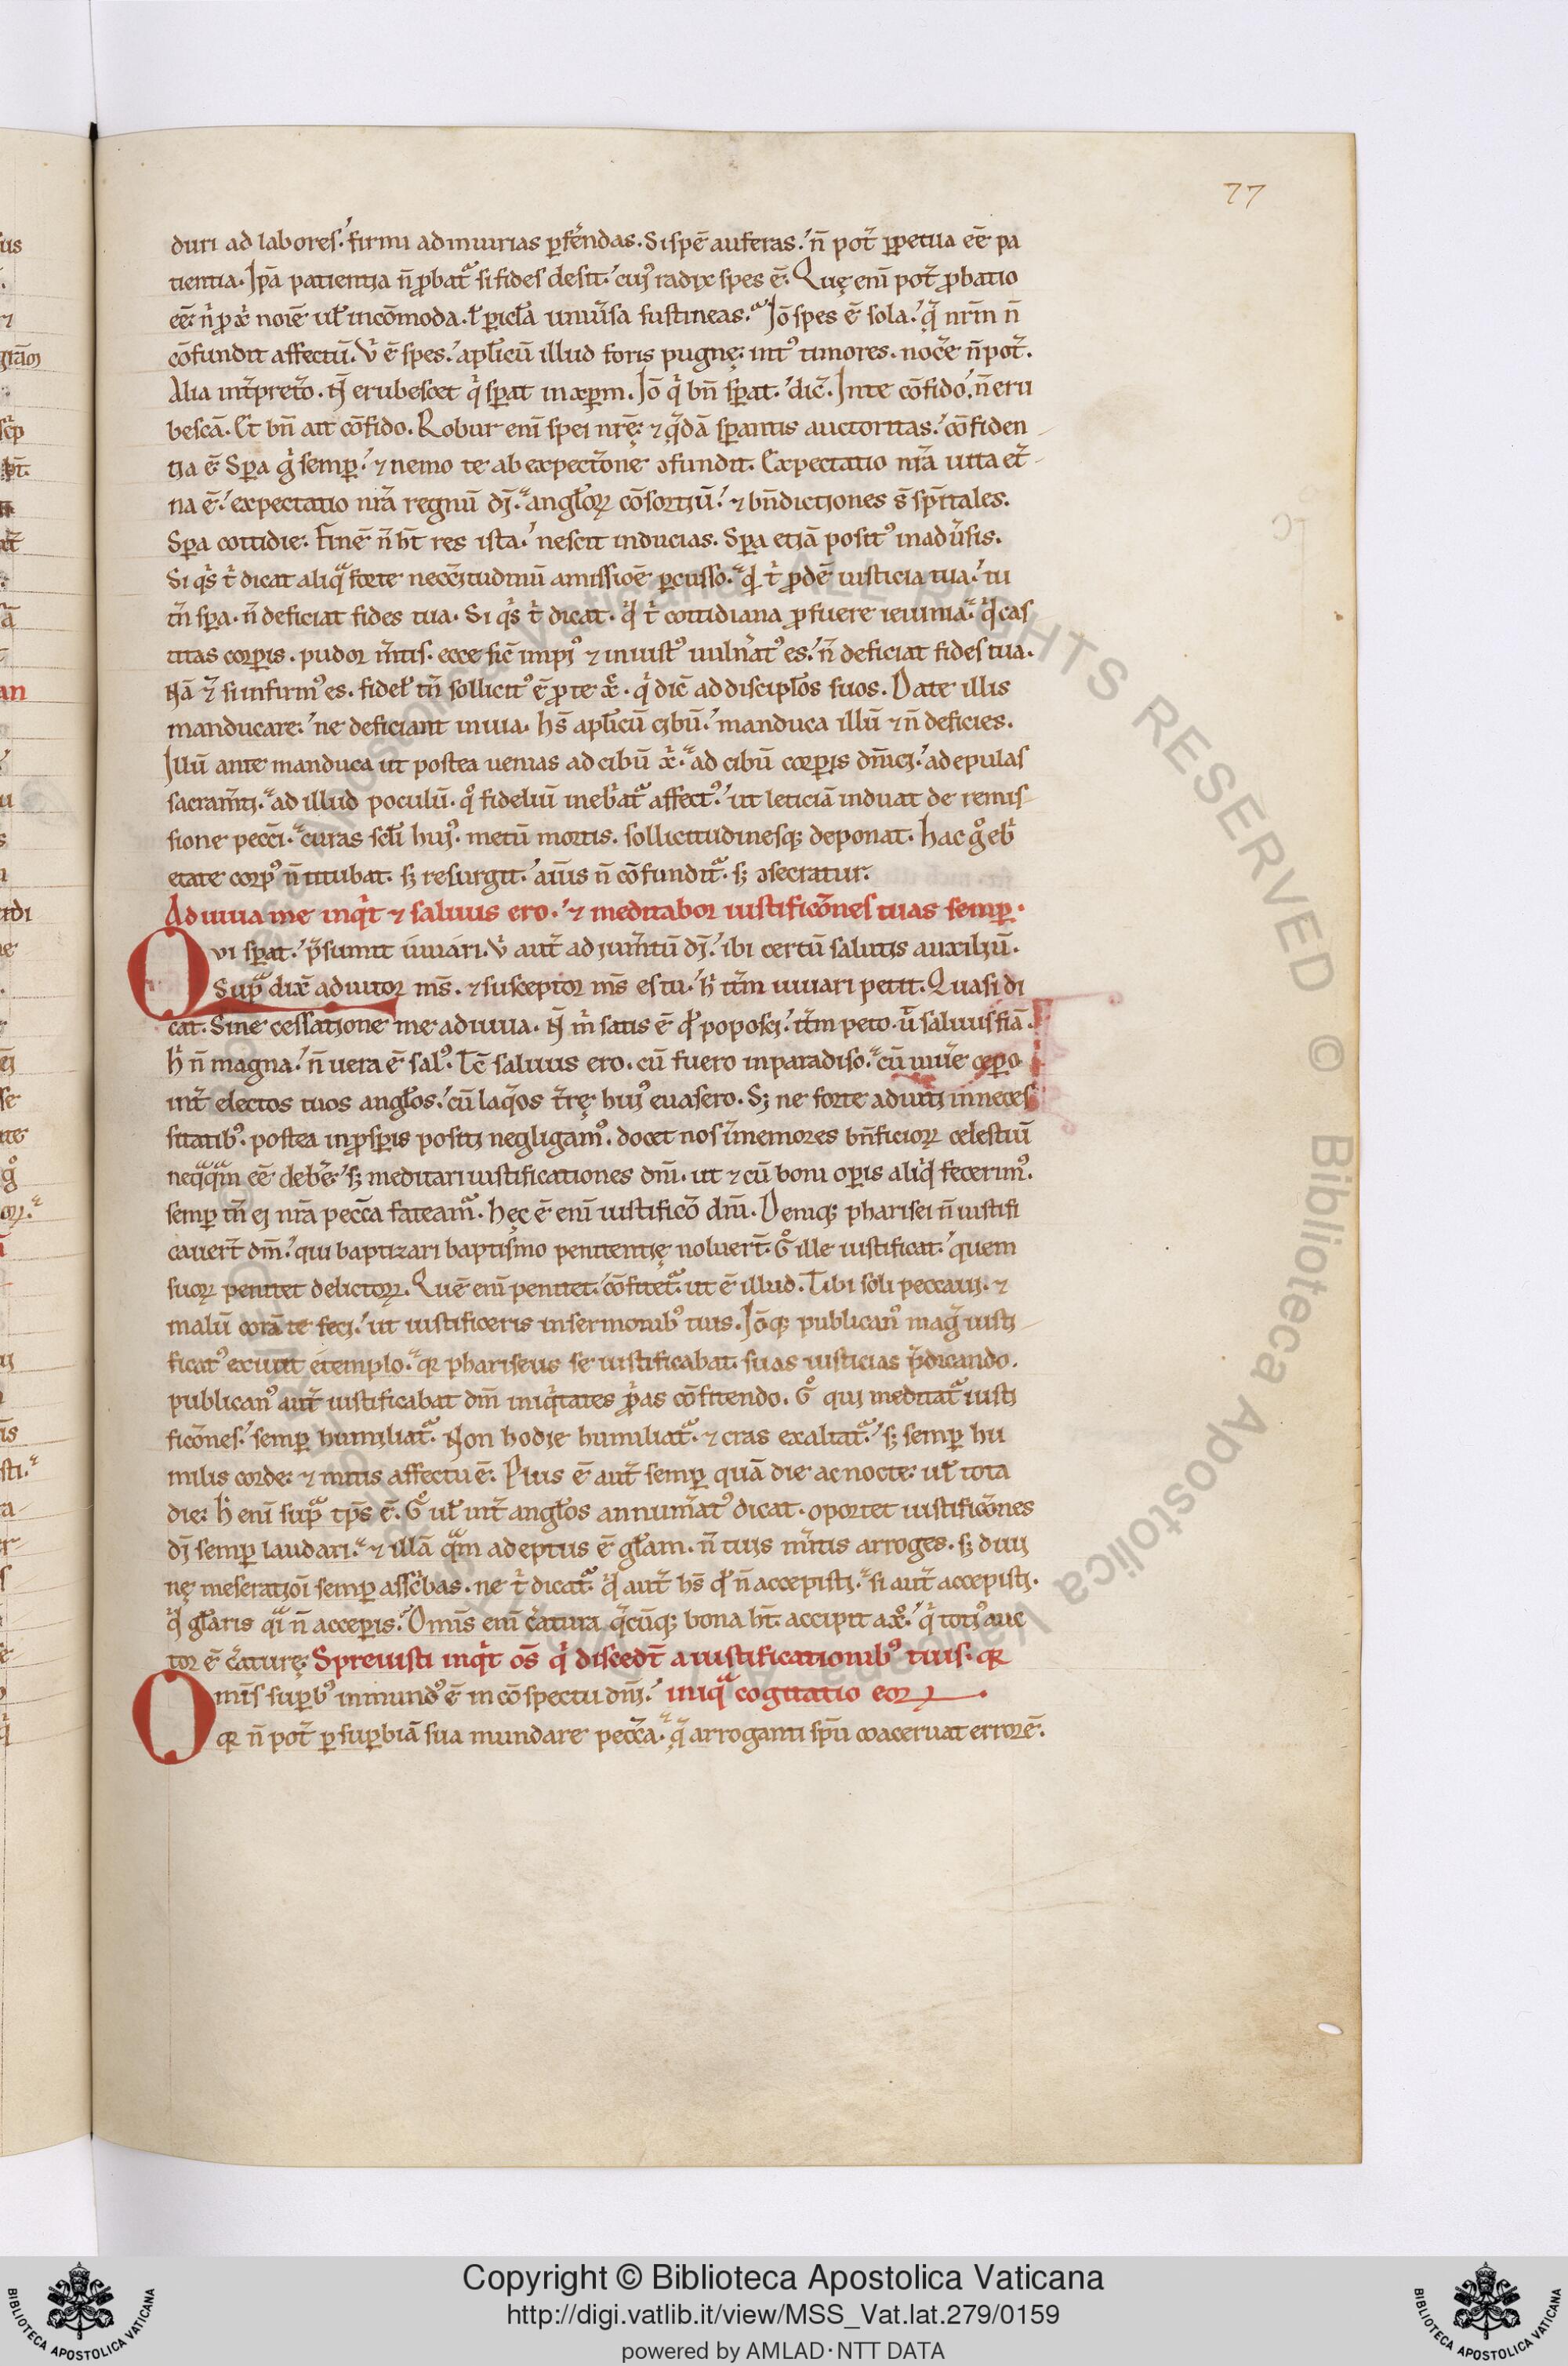 77
duri ad labores. firmi ad iniurias ꝑferendas. Si spē auferas. n̄ pot̄ ꝑpetua eē pa
tientia. Ipā patientia n̄ ꝓbat᷑ si fides desit. cuiꝰ radix spes ē. Quę enī pot̄ ꝓbatio
cōfundit affectū. aplicū illud foris pugnę. intꝰ timores. nocē n̄ pot̄.
Alia int̄pret̄o. erubescet q̇ sꝑat in xꝑm. Iō q̇ bn̄ sꝑat. dic̄. In te cōfido. n̄ eru
bescā. Et bn̄ ait cōfido. Robur enī spei nrę̄. ⁊ q̄dā sꝑantis auctoritas. cōfiden
tia ē. Sꝑa g̊ semꝑ. ⁊ nemo te ab expect̄one ɔfundit. Expectatio nr̄a uita et̄
na ē. expectatio nr̄a regnū dī. anglo̅ꝝ cōsortiū. ⁊ bn̄dictiones s̄ sp̄itales.
Sꝑa cottidie. finē n̄ ht̄ res ista. nescit inducias. Sꝑa etiā positꝰ in adūsis.
Si q̇s t̄ dicat aliq̄ forte neccītudinū amissiōe ꝑcusso. q̇ t̄ ꝓdē iusticia tua. tu
tn̄ sꝑa. n̄ deficiat fides tua. Si q̇s t̄ dicat. q̇ t̄ cottidiana ꝓfuere ieiunia. q̇ cas
titas corꝑis. pudor m̄tis. ecce sic̄ impiꝰ ⁊ iniustꝰ uulnatꝰ es. n̄ deficiat fides tua.
Nā ⁊ si infirmꝰ es. fidel̄ tn̄ sollicitꝰ ē ꝓ te x̄. q̇ dic̄ ad discipłos suos. Date illis
manducare. ne deficiant in uia. hs̄ aplicū cibū. manduca illū ⁊ n̄ deficies.
Illū ante manduca ut postea uenias ad cibū x̄. ad cibū corꝑis dn̄ici. ad epulas
sacram̄ti. ad illud poculū. q̊ fideliū inebat᷑ affectꝰ. ut leticiā induat de remis
sione pecc̄i. curas scłi huiꝰ. metū mortis. sollicitudinesqꝫ deponat. hac g̊ eb
etate corpꝰ n̄ titubat. sꝫ resurgit. aīus n̄ cōfundit᷑. sꝫ ɔsecratur.
Adiuua me inqt ⁊ saluus ero. ⁊ meditabor iustificōnes tuas semꝑ.
Qvi sꝑat. p̄sumit iuuari. aut̄ adium̄tū dī. ibi certū salutis auxiliū.
Sup̄ dix̄ adiutor ms̄. ⁊ susceptor ms̄ es tu. h̄ it̄m iuuari petit. Quasi di
cat. Sine cessatione me adiuua. m̄ satis ē qd̄ poposci. it̄m peto. ū saluus fiā.
h̄ n̄ magna. n̄ uera ē salꝰ. Tc̄ saluus ero. cū fuero in paradiso. cū uiuē cepo
int̄ electos tuos angłos. cū laq̄os t̄rę huiꝰ euasero. Sꝫ ne forte adiuti in neces
sitatibꝰ. postea in ꝓsꝑis positi negligamꝰ. docet nos īmemores bn̄ficioꝝ celestiū
neq̄q̄m eē debē. sꝫ meditari iustificationes dn̄i. ut ⁊ cū boni oꝑis aliq̇d fecerimꝰ.
semꝑ tn̄ ei nr̄a pecc̄a fateam᷑. hęc ē enī iustificō dn̄i. Deniqꝫ pharisei n̄ iustifi
cauert̄ dn̄i. qui baptizari baptismo penitentię noluert̄. G̊ ille iustificat. quem
suoꝝ penitet delictoꝝ. Quē enī penitet. cōfitet᷑. ut ē illud. Tibi soli peccaui. ⁊
malū corā te feci. ut iustificeris in sermonibꝰ tuis. Iōqꝫ publicanꝰ mag̊ iusti
ficatꝰ exiuit e templo. qꝛ phariseus se iustificabat. suas iusticias p̄dicando.
publicanꝰ aut̄ iustificabat dn̄m iniq̇tates ꝓp̄as cōfitendo. G̊ qui meditat᷑ iusti
ficōnes. semꝑ humiliat᷑. Non hodie humiliat᷑. ⁊ cras exaltat᷑. sꝫ semꝑ hu
milis corde. ⁊ mitis affectu ē. Plus ē aut̄ semꝑ quā die ac nocte. uł tota
die. h̄ enī sup̄ tp̄s ē. G̊ uł int̄ angłos annum̄atꝰ dicat. oportet iustificōnes
dī semꝑ laudari. ⁊ illā q̄m adeptus ē głam. n̄ tuis m̄itis arroges. sꝫ diui
nę meseratiōi semꝑ ascribas. ne t̄ dicat᷑. q̇d aut̄ hs̄ qd̄ n̄ accepisti. si aut̄ accepisti.
q̇d głaris q̄i n̄ acceꝑis. Omīs enī c̄atura q̄cūqꝫ bona ht̄. accipit a x̄o. q̇ totiꝰ auc
tor ē c̄aturę. Spreuisti inqt os̄ q̇ discedt̄ a iustificationibꝰ tuis. qꝛ
Omīs suꝑbꝰ inmundꝰ ē in cōspectu dn̄i. iniq̄ cogitatio eoꝝ.
qꝛ n̄ pot̄ ꝑ suꝑbiā sua mundare pecc̄a. q̄ arroganti spū coaceruat errorē.
ALL RIGHTS RESERVED © Biblioteca Apostolica Vaticana
Copyright © Biblioteca Apostolica Vaticana
http://digi.vatlib.it/view/MSS_Vat.lat.279/0159
powered by AMLAD·NTT DATA
BIBLIOTECA APOSTOLICA VATICANA
BIBLIOTECA APOSTOLICA VATICANA